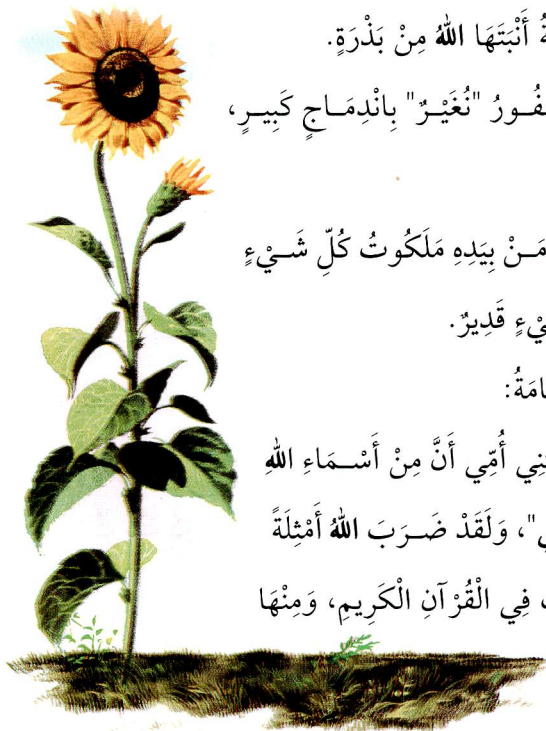 ـةُ أَنْبَتَهَا اللهُ مِنْ بَذْرَةٍ.
ـفُـورُ "نُغَيْـرٌ" بِانْدِمَـاجٍ كَبِيـرٍ،
مَـنْ بِيَدِهِ مَلَكُوتُ كُلِّ شَـيْءٍ
ـيْءٍ قَدِيرٌ.
ـامَةُ:
ـنِي أُمِّي أَنَّ مِنْ أَسْـمَاءِ اللهِ
"، وَلَقَدْ ضَـرَبَ اللهُ أَمْثِلَةً
فِي الْقُرْآنِ الْكَرِيمِ، وَمِنْهَا